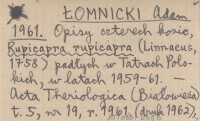 ŁOMNICKI Adam
1961. Opisy czterech kozic,
Rupicapra rupicapra (Linnaeus,
1758) padłych w Tatrach Pols-
kich, w latach 1959-61. —
Acta Theriologica (Białowieża)
t. 5, nr 19, r. 1961 (druk 1962),